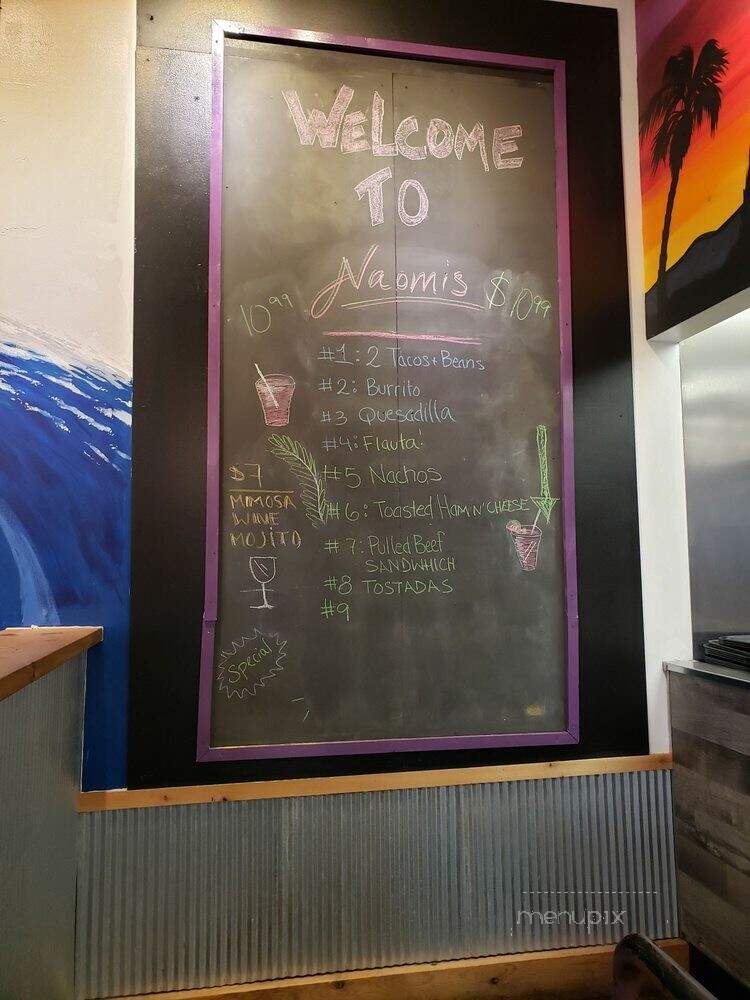 WELCOME
TO
Naomis
10.99
$10.99
#1: 2 Tacos + Beans
#2: Burrito
#3 Quesadilla
#4: Flauta!
#5 Nachos
#6: Toasted Ham N' CHEESE
#7: Pulled Beef
SANDWHICH
#8 TOSTADAS
#9
$7
MIMOSA
WINE
MOJITO
Special
menupix